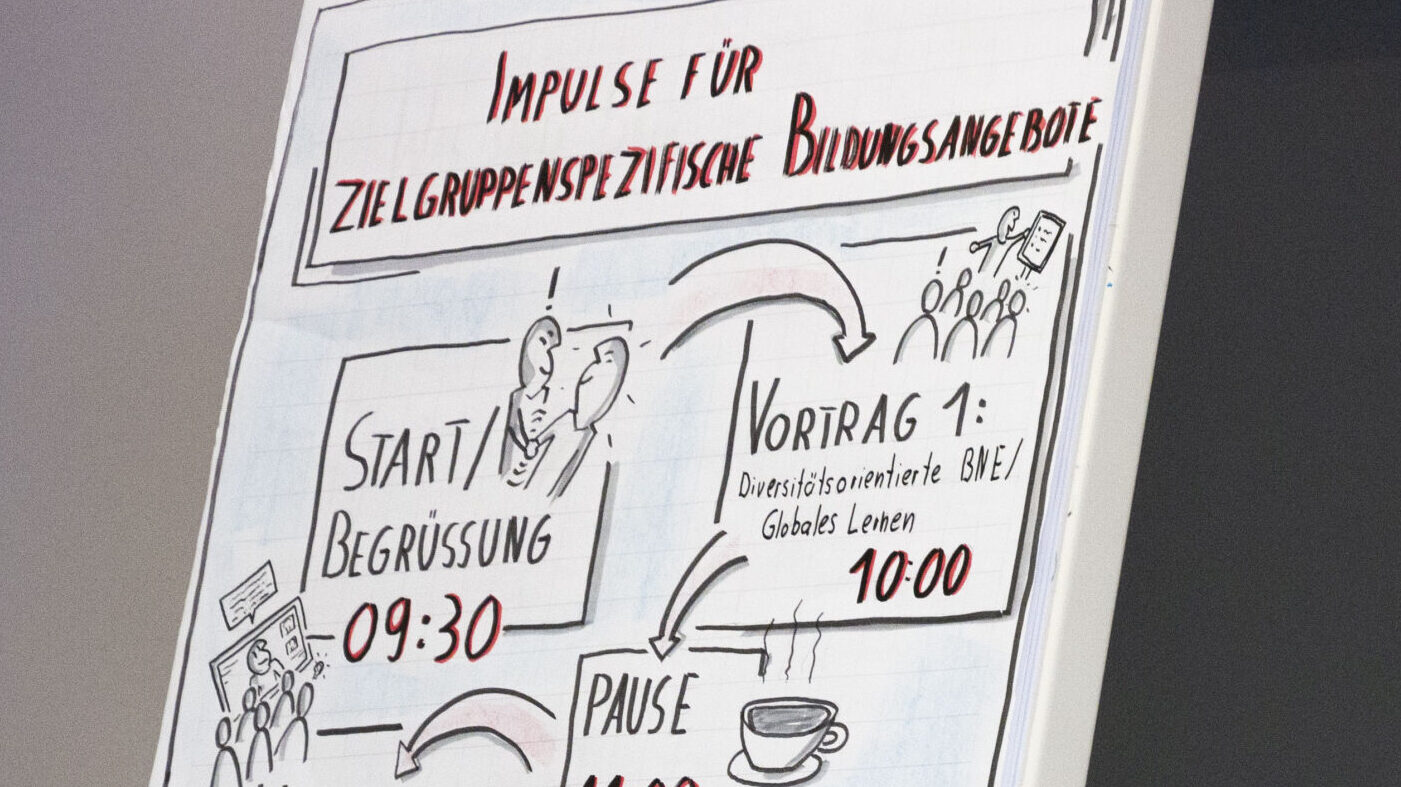 IMPULSE FÜR
ZIELGRUPPENSPEZIFISCHE BILDUNGSANGEBOTE
START/
BEGRÜSSUNG
09:30
VORTRAG 1:
Diversitätsorientierte BNE/
Globales Lernen
10:00
PAUSE